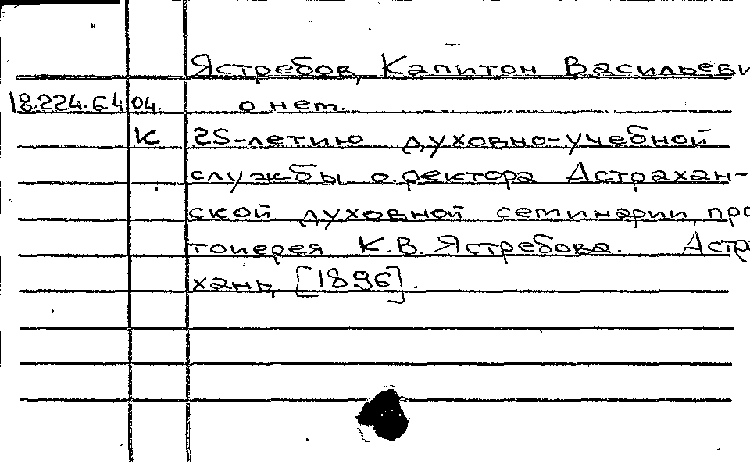 Ястребов, Капитон Васильеви
18.224.64 04. о нем.
К 25-летию духовно-учебной
службы о.ректора Астрахан-
ской духовной семинарии, про
тоиерея К.В. Ястребова. Астра
хань, [1896].